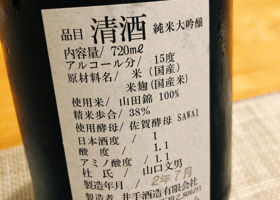 品目 清酒 純米大吟醸
内容量/ 720mℓ
アルコール分/ 15度
原材料名/ 米(国産)
米麹(国産米)
使用米/ 山田錦 100%
精米歩合/ 38%
使用酵母/ 佐賀酵母 SAWAI
日本酒度/ 1
酸度/ 1.1
アミノ酸度/ 1.1
杜氏/ 山口文男
製造年月/ 2年7月
製造者 井手酒造有限会社